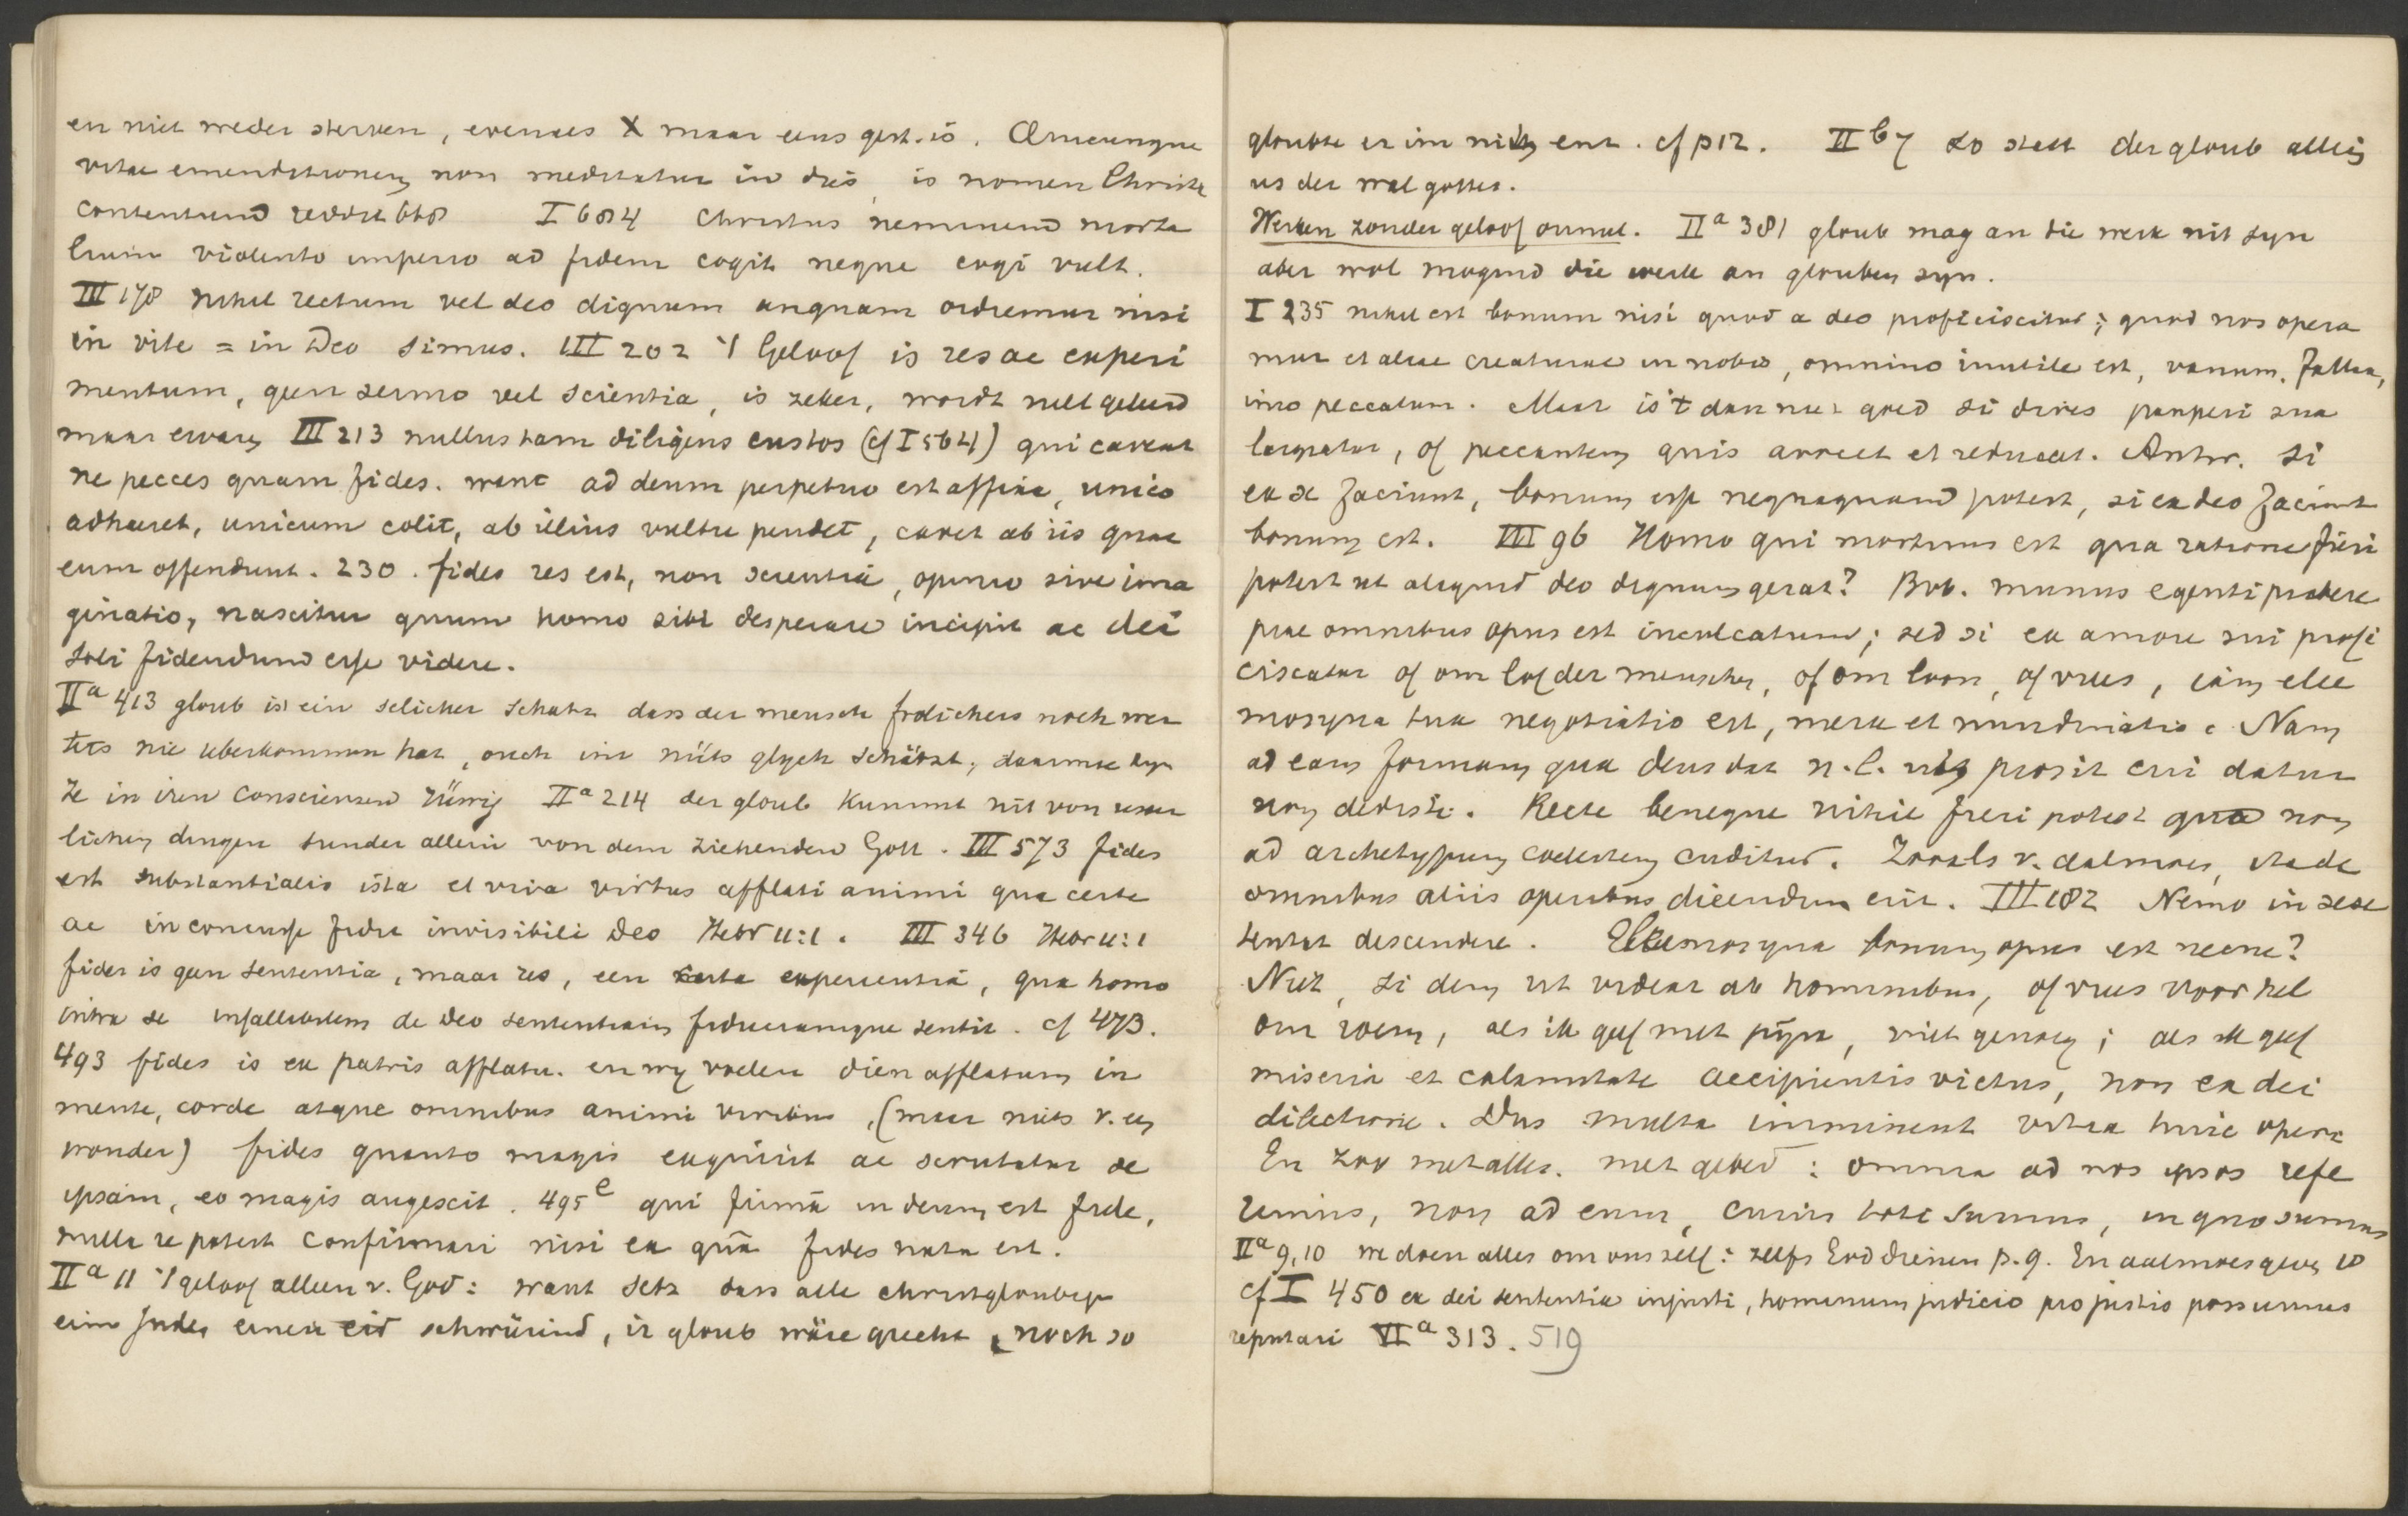 en niet weder sterven, evenals X maar eens gest. is. Quicunque
vitae emendationem non meditatur in dies, is nomen Christi
contentum reddit 668 I 604 Christus neminem morta
lium violento imperio ad fidem cogit neque cogi vult.
III 178 nihil rectum vel deo dignum unquam ordiemur nisi
in vite = in Deo simus. III 202 't Geloof is res ac experi
mentum, geen sermo vel scientia, is zeker, wordt niet geleerd
maar ervaren III 213 nullus tam diligens custos (cf I 564) qui caveat
ne pecces quam fides. want ad deum perpetuo est affixa, unico
adhaeret, unicum colit, ab illius vultu pendet, cavet ab iis quae
eum offendunt. 230. fides res est, non scientia, opinio sive ima
ginatio, nascitur quum homo sibi desperare incipit ac dei
soli fidendum esse videre.
II a 413 gloub ist ein selicher schatz dass der mensch frölichers noch wer
ters nie uberkommen hat, ouch im nüts glych schätzt, darumb syn
ze in iren consciensen rüwig II a 214 der gloub kummt nit von usser
lichen dingen sunder allein von dem ziehenden Gott. III 573 fides
est substantialis ista et viva virtus afflati animi qua certe
ac inconcusse fidit invisibili Deo Hebr 11:1. III 346 Hebr 11:1
fides is geen sententia, maar res, een certa experientia, qua homo
intra se infallibilem de Deo sententiam fiduciamque sentit. cf 473.
493 fides is ex patris afflatu. en wy voelen dien afflatum in
mente, corde atque omnibus animi viribus, (maar niets v. een
wonder) fides quanto magis exquirit ac scrutatur se
ipsam, eo magis augescit. 495 e qui firma in deum est fide,
nulla re potest confirmari nisi ex qua fides nata est.
II a 11 't geloof alleen v. God: want setz dass alle christglöubige
eim Juden einen eid schwürind, ir gloub wäre grecht, noch so
gloubte er im nüts ent. cf p 12. II b 7 so stett der gloub allein
us der wal gottes.
Werken zonder geloof onnut. II a 381 gloub mag an die werk nit syn
aber wol mogend die werk an glouben syn.
I 235 nihil est bonum nisi quod a deo proficiscitur; quod nos opera
mur et aliae creaturae in nobis, omnino inutile est, vanum, fallax,
imo peccatum. Maar is 't dan niet goed si dives pauperi sua
largiatur, of peccantem quis arreet et reducat. Antw. Si
ex se faciunt, bonum esse nequaquam potest, si ex deo faciunt
bonum est. III 96 Homo qui mortuus est qua ratione fieri
potest ut aliquid deo dignum gerat? Bvb. munus egenti praebere
prae omnibus opus est inculcatum; sed si ex amore sui profi
ciscatur of om lof der menschen, of om loon, of vrees, iam elee
mosyna tua negotiatio est, merx et nundinatio. Nam
ad eam formam qua deus dat n.l. ut prosit cui datur
non dedisti. Recte beneque nihil fieri potest quod non
ad archetypum coelestem cuditur. Zooals v. aalmoes, ita de
omnibus aliis operibus dicendum erit. III 182 Nemo in sese
tentat descendere. Eleemosyna bonum opus est necne?
Niet, si dem ut videar ab hominibus, of vrees voor hel
om roem, als ik geef met pijn, niet genoeg; als ik geef
miseria et calamitate accipientis victus, non ex dei
dilectione. Dus multa imminent vitia huic operi
En zoo met alles. met gebed: omnia ad nos ipsos refe
rimus, non ad eum, cuius toti sumus, in quo sumus
II a 9,10 we doen alles om ons zelf: zelfs God dienen p. 9. En aalmoes geven 10
cf I 450 ex dei sententia injusti, hominum judicio pro justis possumus
reputari VI a 313. 519